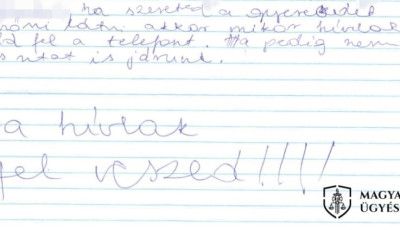 ha szereted a gyereкedet
látni akkor mikor hívlak
d fel a telefont. Ha pedig nem
s utat is járunk.
a hívlak
fel veszed!!!!
MAGYA
ÜGYÉS